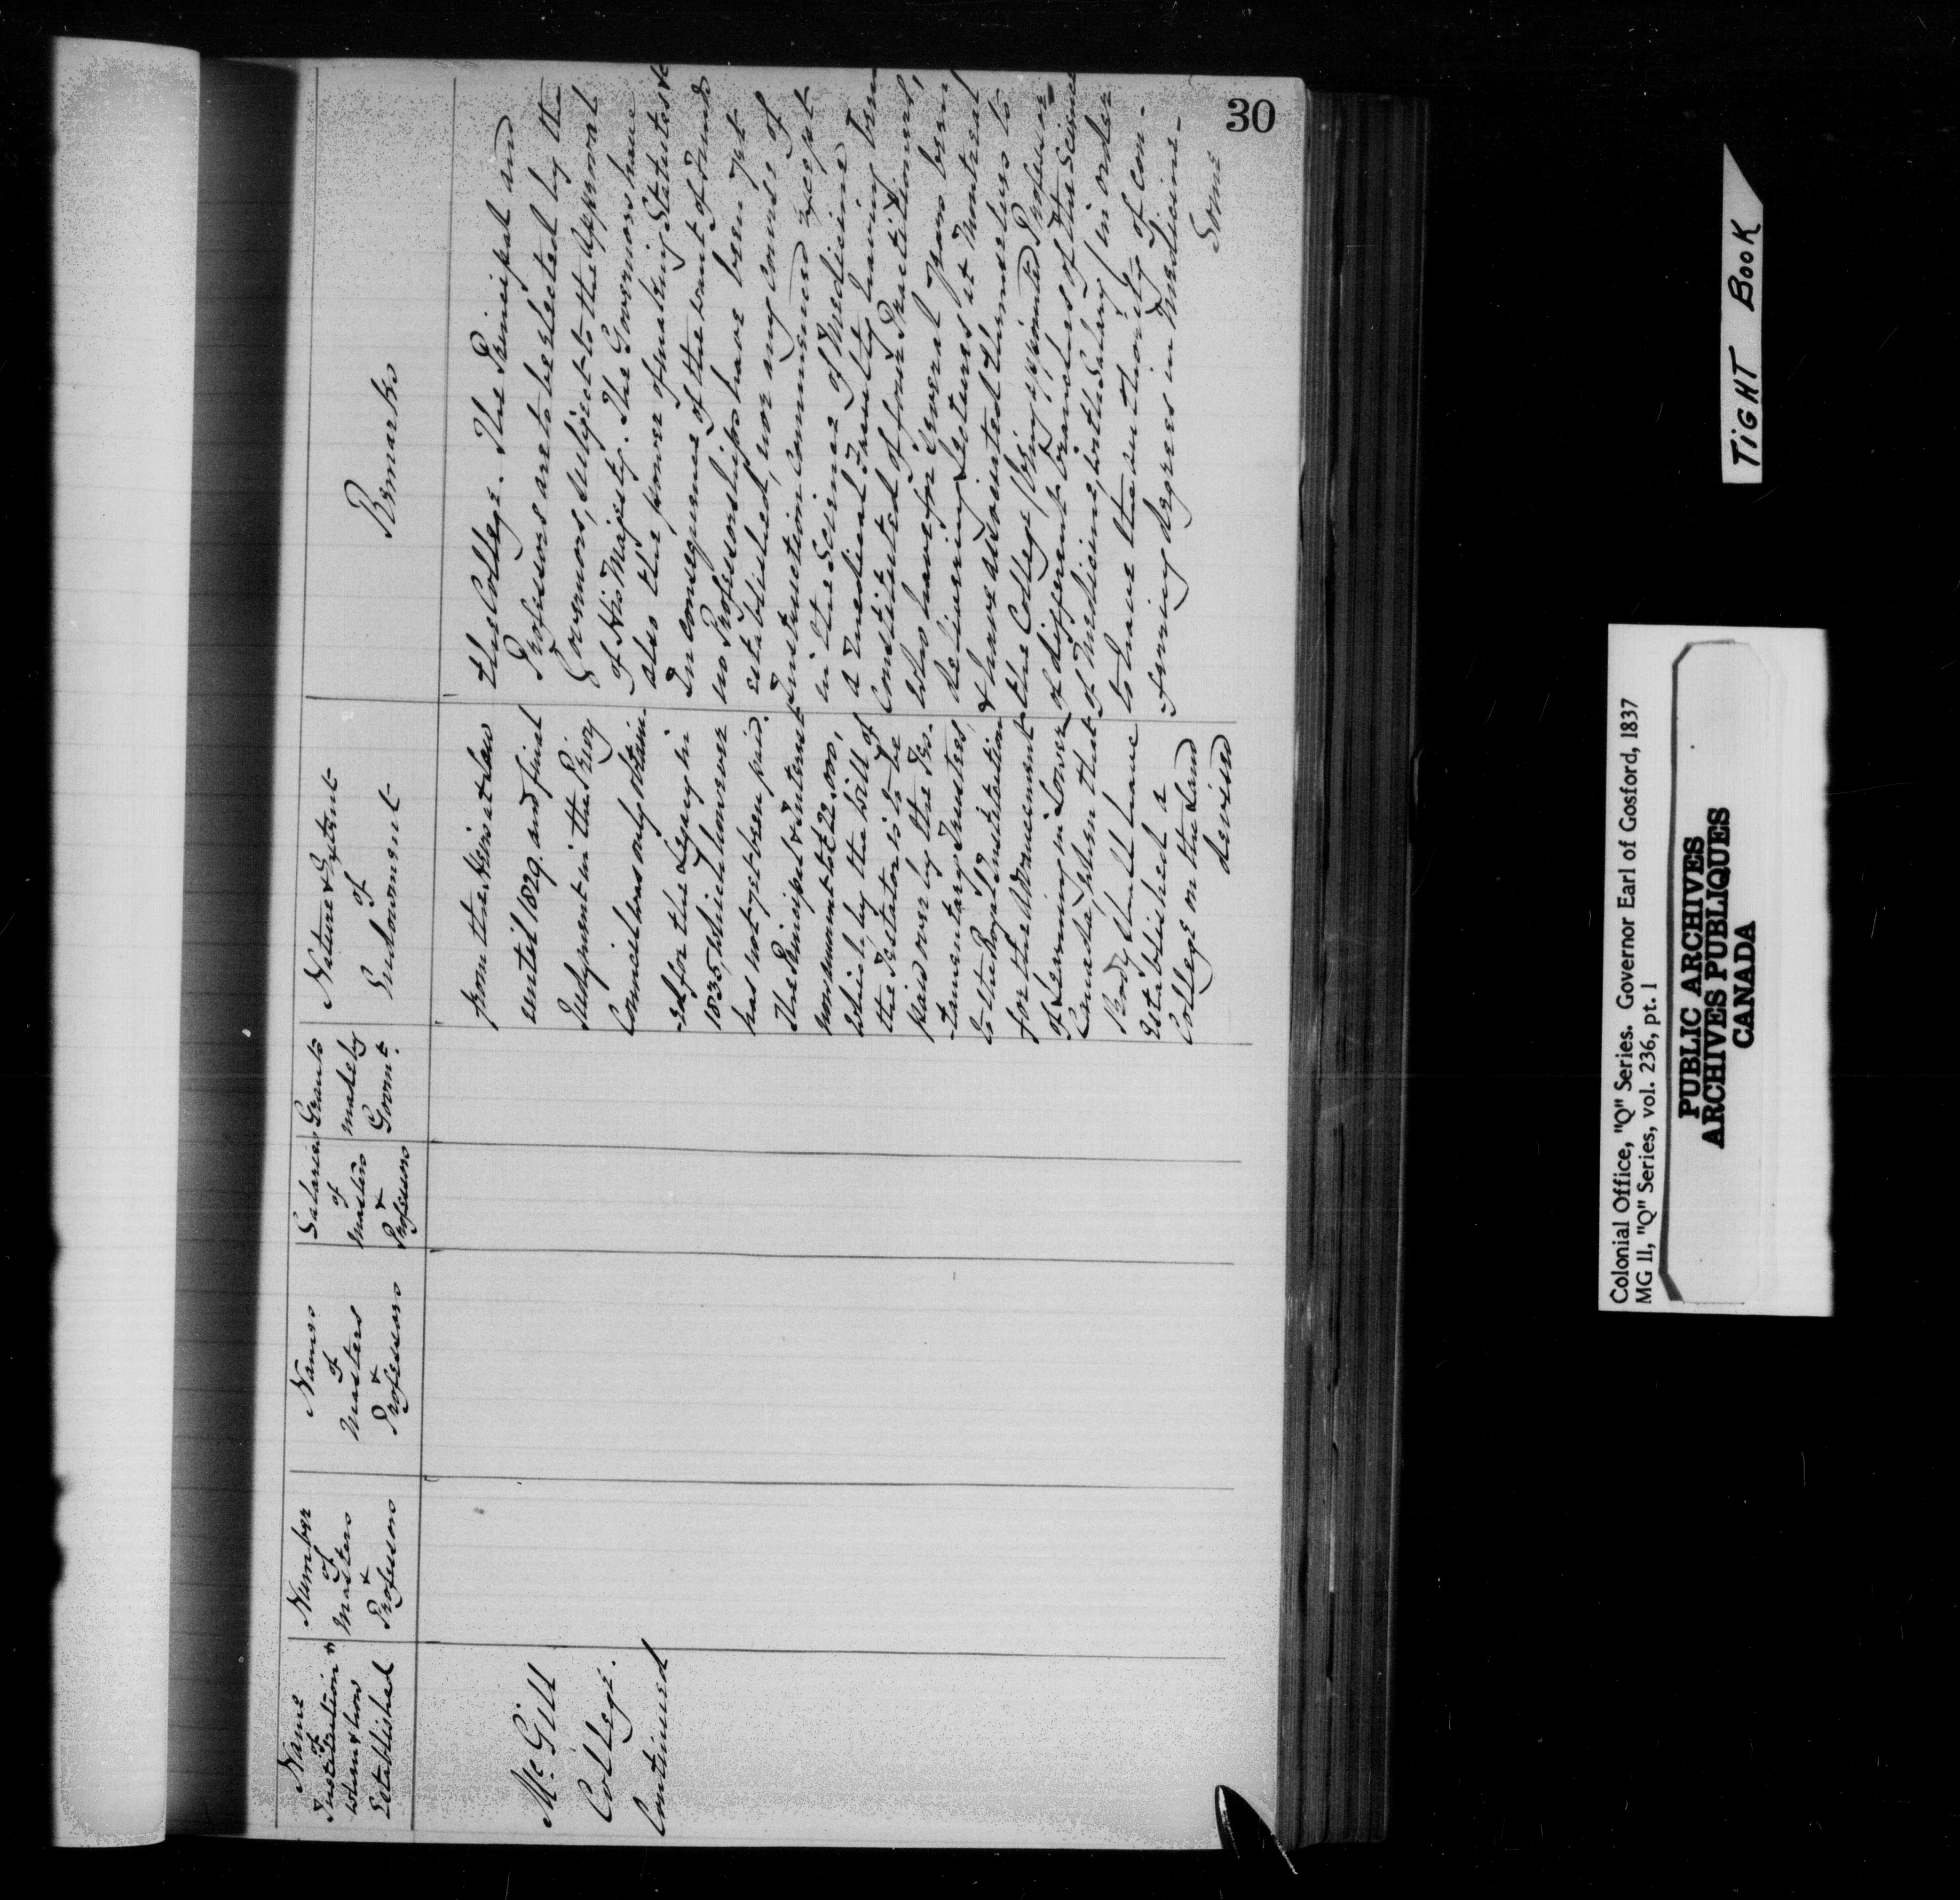 30
Name
of
Institution &
when & how
Established
Number
of
Masters
&
Professors
Names
of
Masters
&
Professors
Salaries
of
Masters
&
Professors
Grants
made by
Governt.
Nature & Extent
of
Endowment
Remarks
Mc.Gill
College.
Continued
from the Heirs at Law
until 1829. and final
Judgment in the Privy
Council was only obtain-
ed for the Legacy in
1835, which however
has not yet been paid.
The Principal & Interest
now amount to £22.000,
which by the Will of
the Testator is to be
paid over by the Tes-
tamentary Trustees,
to the Royal Institution
for the Advancement
of Learning in Lower
Canada, when that
Body shall have
established a
College on the Land
devised
the College. The Principal and
Professors are to be elected by the
Governors, subject to the Approval
of His Majesty. The Governors have
also the power of making Statutes &c
In consequence of the want of Funds
no Professorships have been yet
established, nor any Course of
Instruction Commenced except
in the Science of Medicine
a Medical Faculty having been
Constituted of four Practitioners,
who have for several years been
delivering Lectures at Montreal
& have associated themselves to
the College, being appointed Profess-
of different branches of the Science
of Medicine, witht Salary, in order
to have the authority of con-
ferring degrees in Medicine-
Some
TIGHT BOOK
Colonial Office, "Q" Series. Governor Earl of Gosford, 1837
MG 11, "Q" Series, vol. 236, pt. 1
PUBLIC ARCHIVES
ARCHIVES PUBLIQUES
CANADA